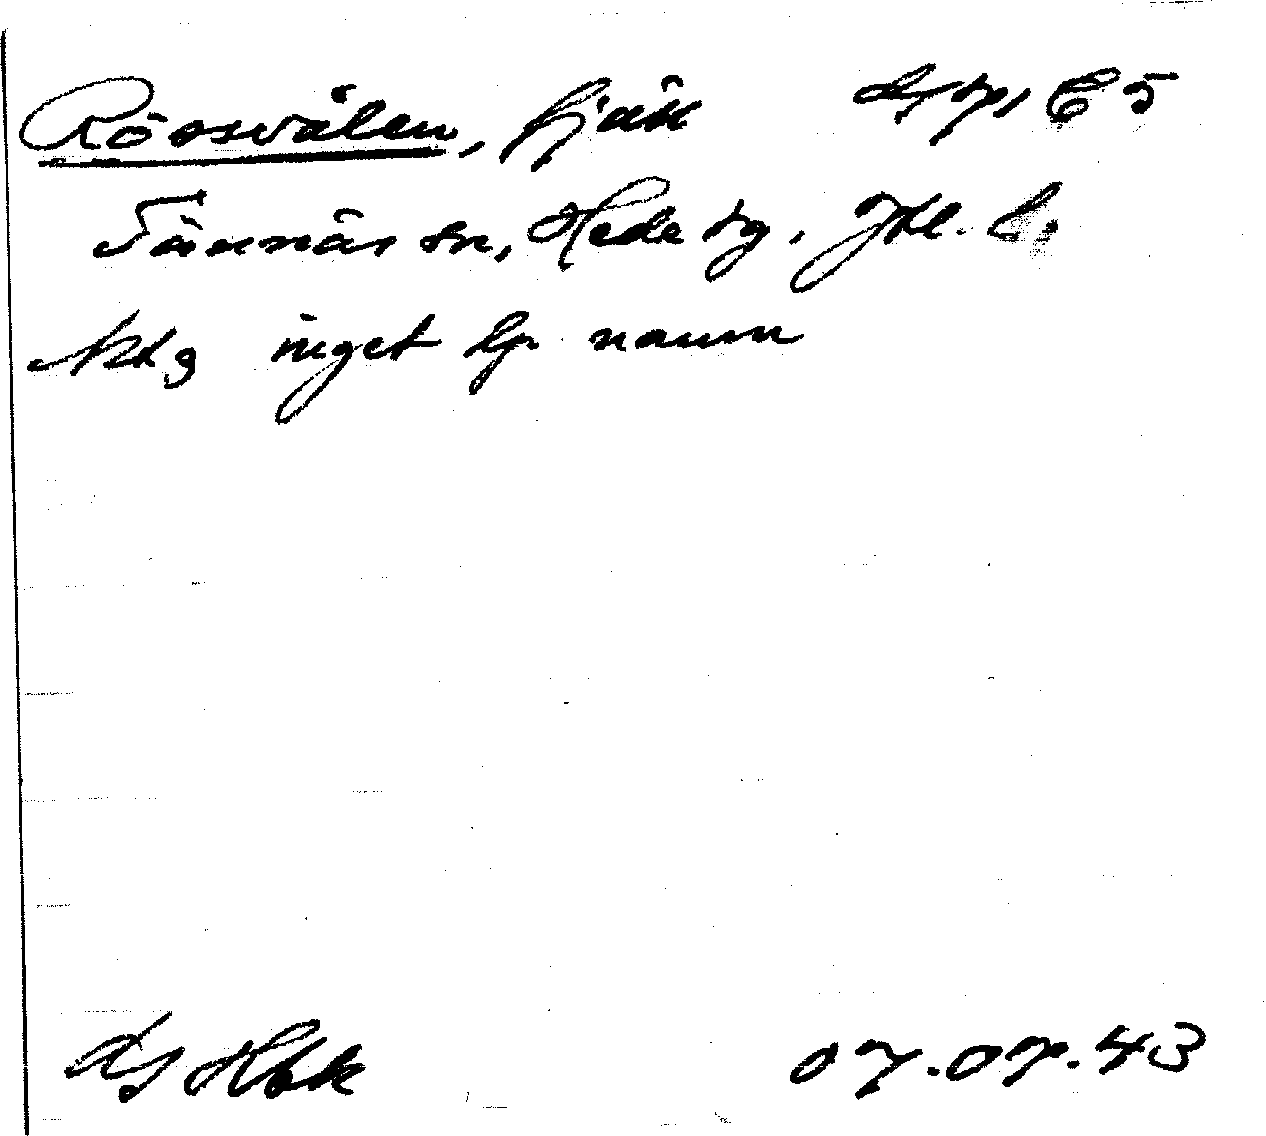 Rössvålen, fjäll 47, C5
Tännäs sn, Hede tg. Jtl. l.
Nkg inget lp. namn
dS Hbk 07.07.43